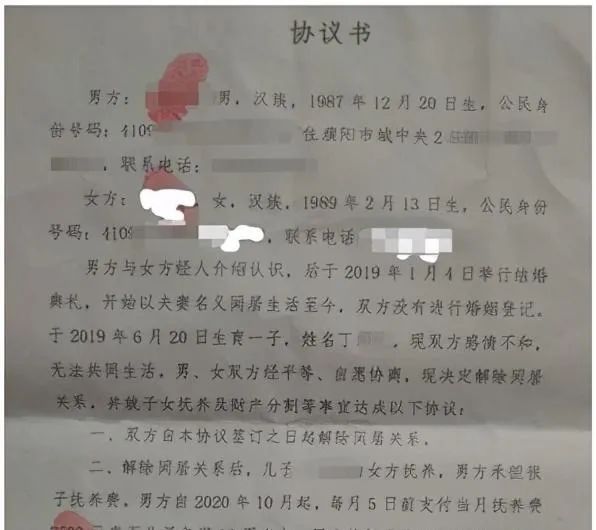 协议书
男方： 男，汉族，1987年12月20日生，公民身
份号码：4109 住濮阳市城中央2
，联系电话：
女方： ，女，汉族，1989年2月13日生，公民身份
号码：4109 ，联系电话
男方与女方经人介绍认识，后于2019年1月4日举行结婚
典礼，开始以夫妻名义同居生活至今，双方没有进行婚姻登记。
于2019年6月20日生育一子，姓名丁 ，现双方感情不和，
无法共同生活，男、女双方经平等、自愿协商，现决定解除同居
关系，并就子女抚养及财产分割等事宜达成以下协议：
一、双方自本协议签订之日起解除同居关系。
二、解除同居关系后，儿子 女方抚养，男方承担孩
子抚养费。男方自2020年10月起，每月5日前支付当月抚养费